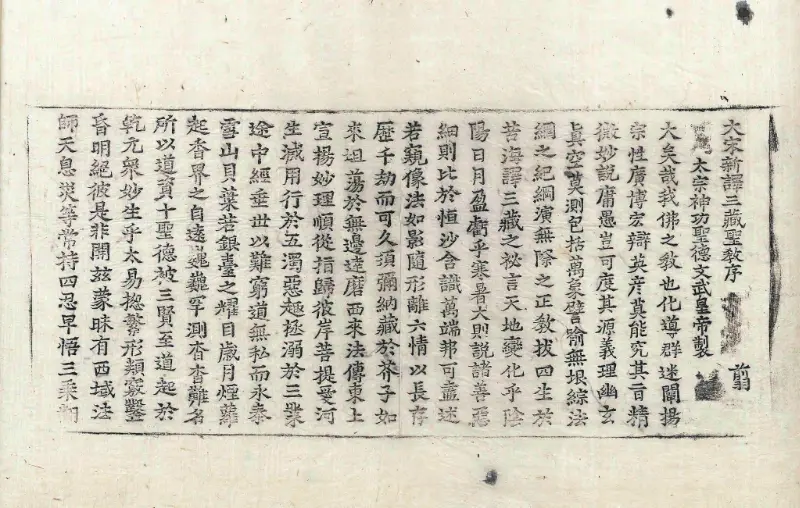 大宋新譯三藏聖教序
太宗神功聖德文武皇帝製 翦
大矣哉我佛之教也化導群迷闡揚
宗性廣博宏辯英彥莫能究其旨精
微妙說庸愚豈可度其源義理幽玄
真空莫測包括萬象譬喻無垠綜法
網之紀綱演無際之正教拔四生於
苦海譯三藏之祕言天地變化乎陰
陽日月盈虧乎寒暑大則說諸善惡
細則比於恒沙含識萬端弗可盡述
若窺像法如影隨形離六情以長存
歷千劫而可久須彌納藏於芥子如
來迥蕩於無邊達磨西來法傳東土
宣揚妙理順從指歸彼岸菩提愛河
生滅用行於五濁惡趣拯溺於三業
途中經垂世以難窮道無私而永泰
雪山貝葉若銀臺之耀目歲月煙蘿
起香界之自遠巍巍罕測杳杳難名
所以道資十聖德被三賢至道起於
乾元衆妙生乎太易揔繁形類竅鑿
昏明絕彼是非開茲蒙昧有西域法
師天息災等常持四忍早悟三乘翻